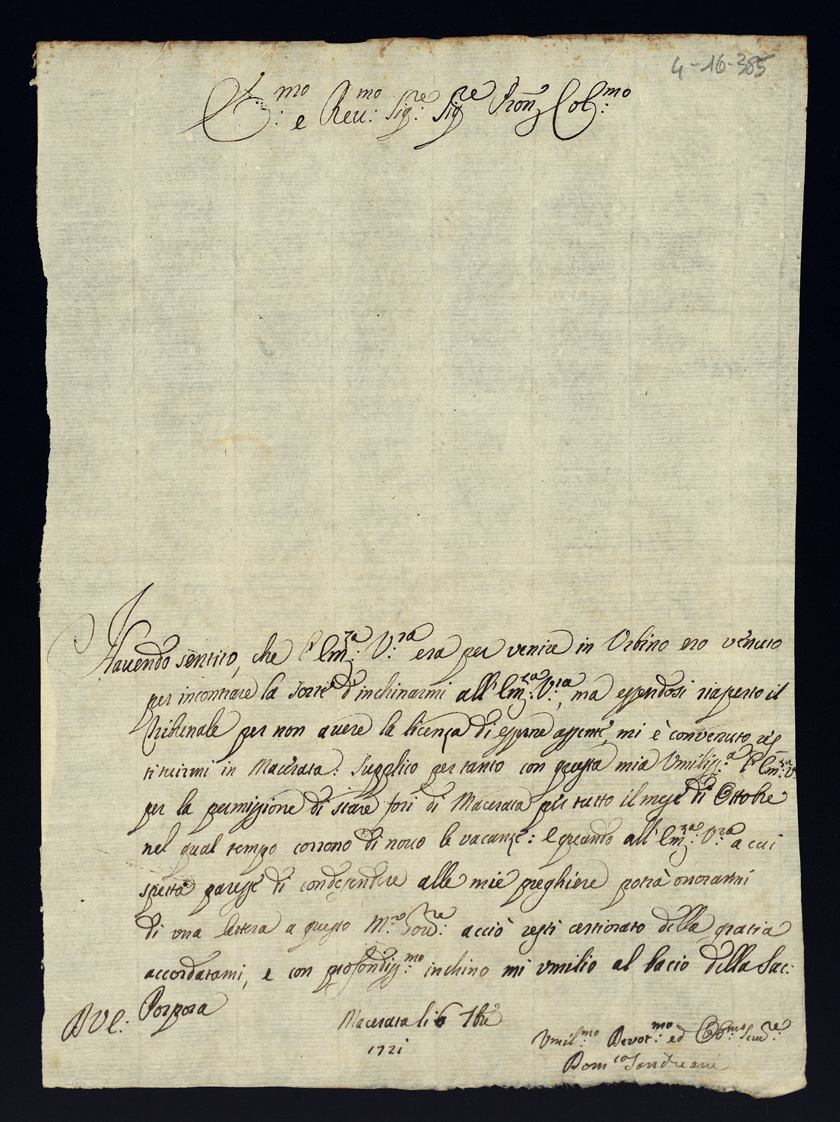 4-16-385
E.mo e Reu.mo Sig.re Sig.re Pron Col.mo
Hauendo sentito, che l'Em.za V.ra era per venire in Urbino ero venuto
per incontrare la sorte d'inchinarmi all'Em.za V.ra, ma essendosi riaperto il
Tribunale per non auere la licenza di essere assente, mi è conuenuto res
tituirmi in Macerata: Supplico pertanto con questa mia Umiliss.a l'Em.za V
per la permissione di stare fori di Macerata per tutto il mese di Ottobre
nel qual tempo corrono di nouo le vacanze: e quando all'Em.za V.ra a cui
spetta paresse di condesendere alle mie preghiere potrà onorarmi
di vna lettera a questo M.r acciò resti certiorato della gratia
accordatami, e con profondiss.mo inchino mi vmilio al bacio della Sac:
Porpora
D V E:
Macerata li 6 7bre
1721
Vmil.mo Deuot.mo ed Ob.mo Seru.re
Dom.co